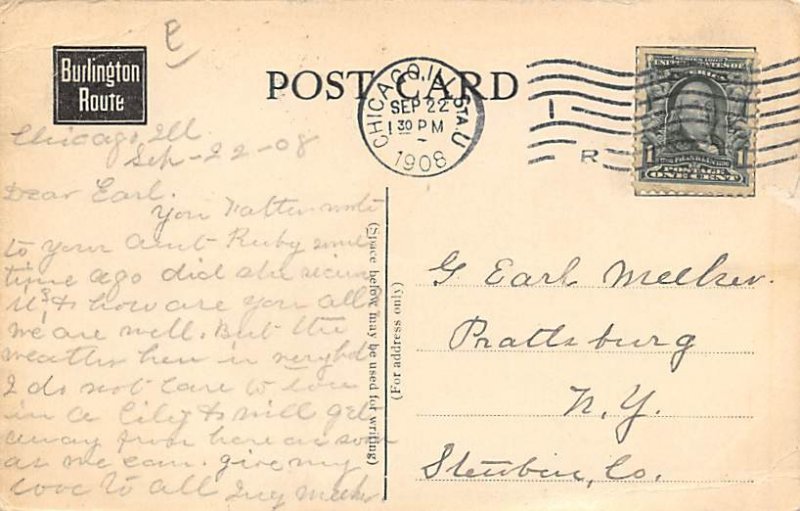 Burlington
Route
POST CARD
CHICAGO, ILL. STA. U
SEP 22
1 30 PM
1908
R
SERIES 1902
UNITED STATES OF
AMERICA
1 FRANKLIN 1
POSTAGE
ONE CENT
Chicago Ill
Sep-22-08
Dear Earl.
You
to your aunt Ruby some
time ago did she
& how are you all
we are well. But the
weather here is
I do not Care to live
in a City & will get
away from here as soon
as we can. give my
love to all Meeker.
(Space below may be used for writing)
(For address only)
G Earl Meeker.
Prattsburg
N. Y.
Steubin, Co.